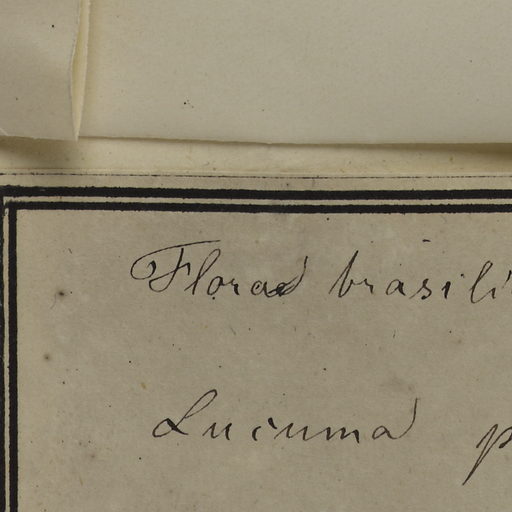 Flora brasili
Lucuma p